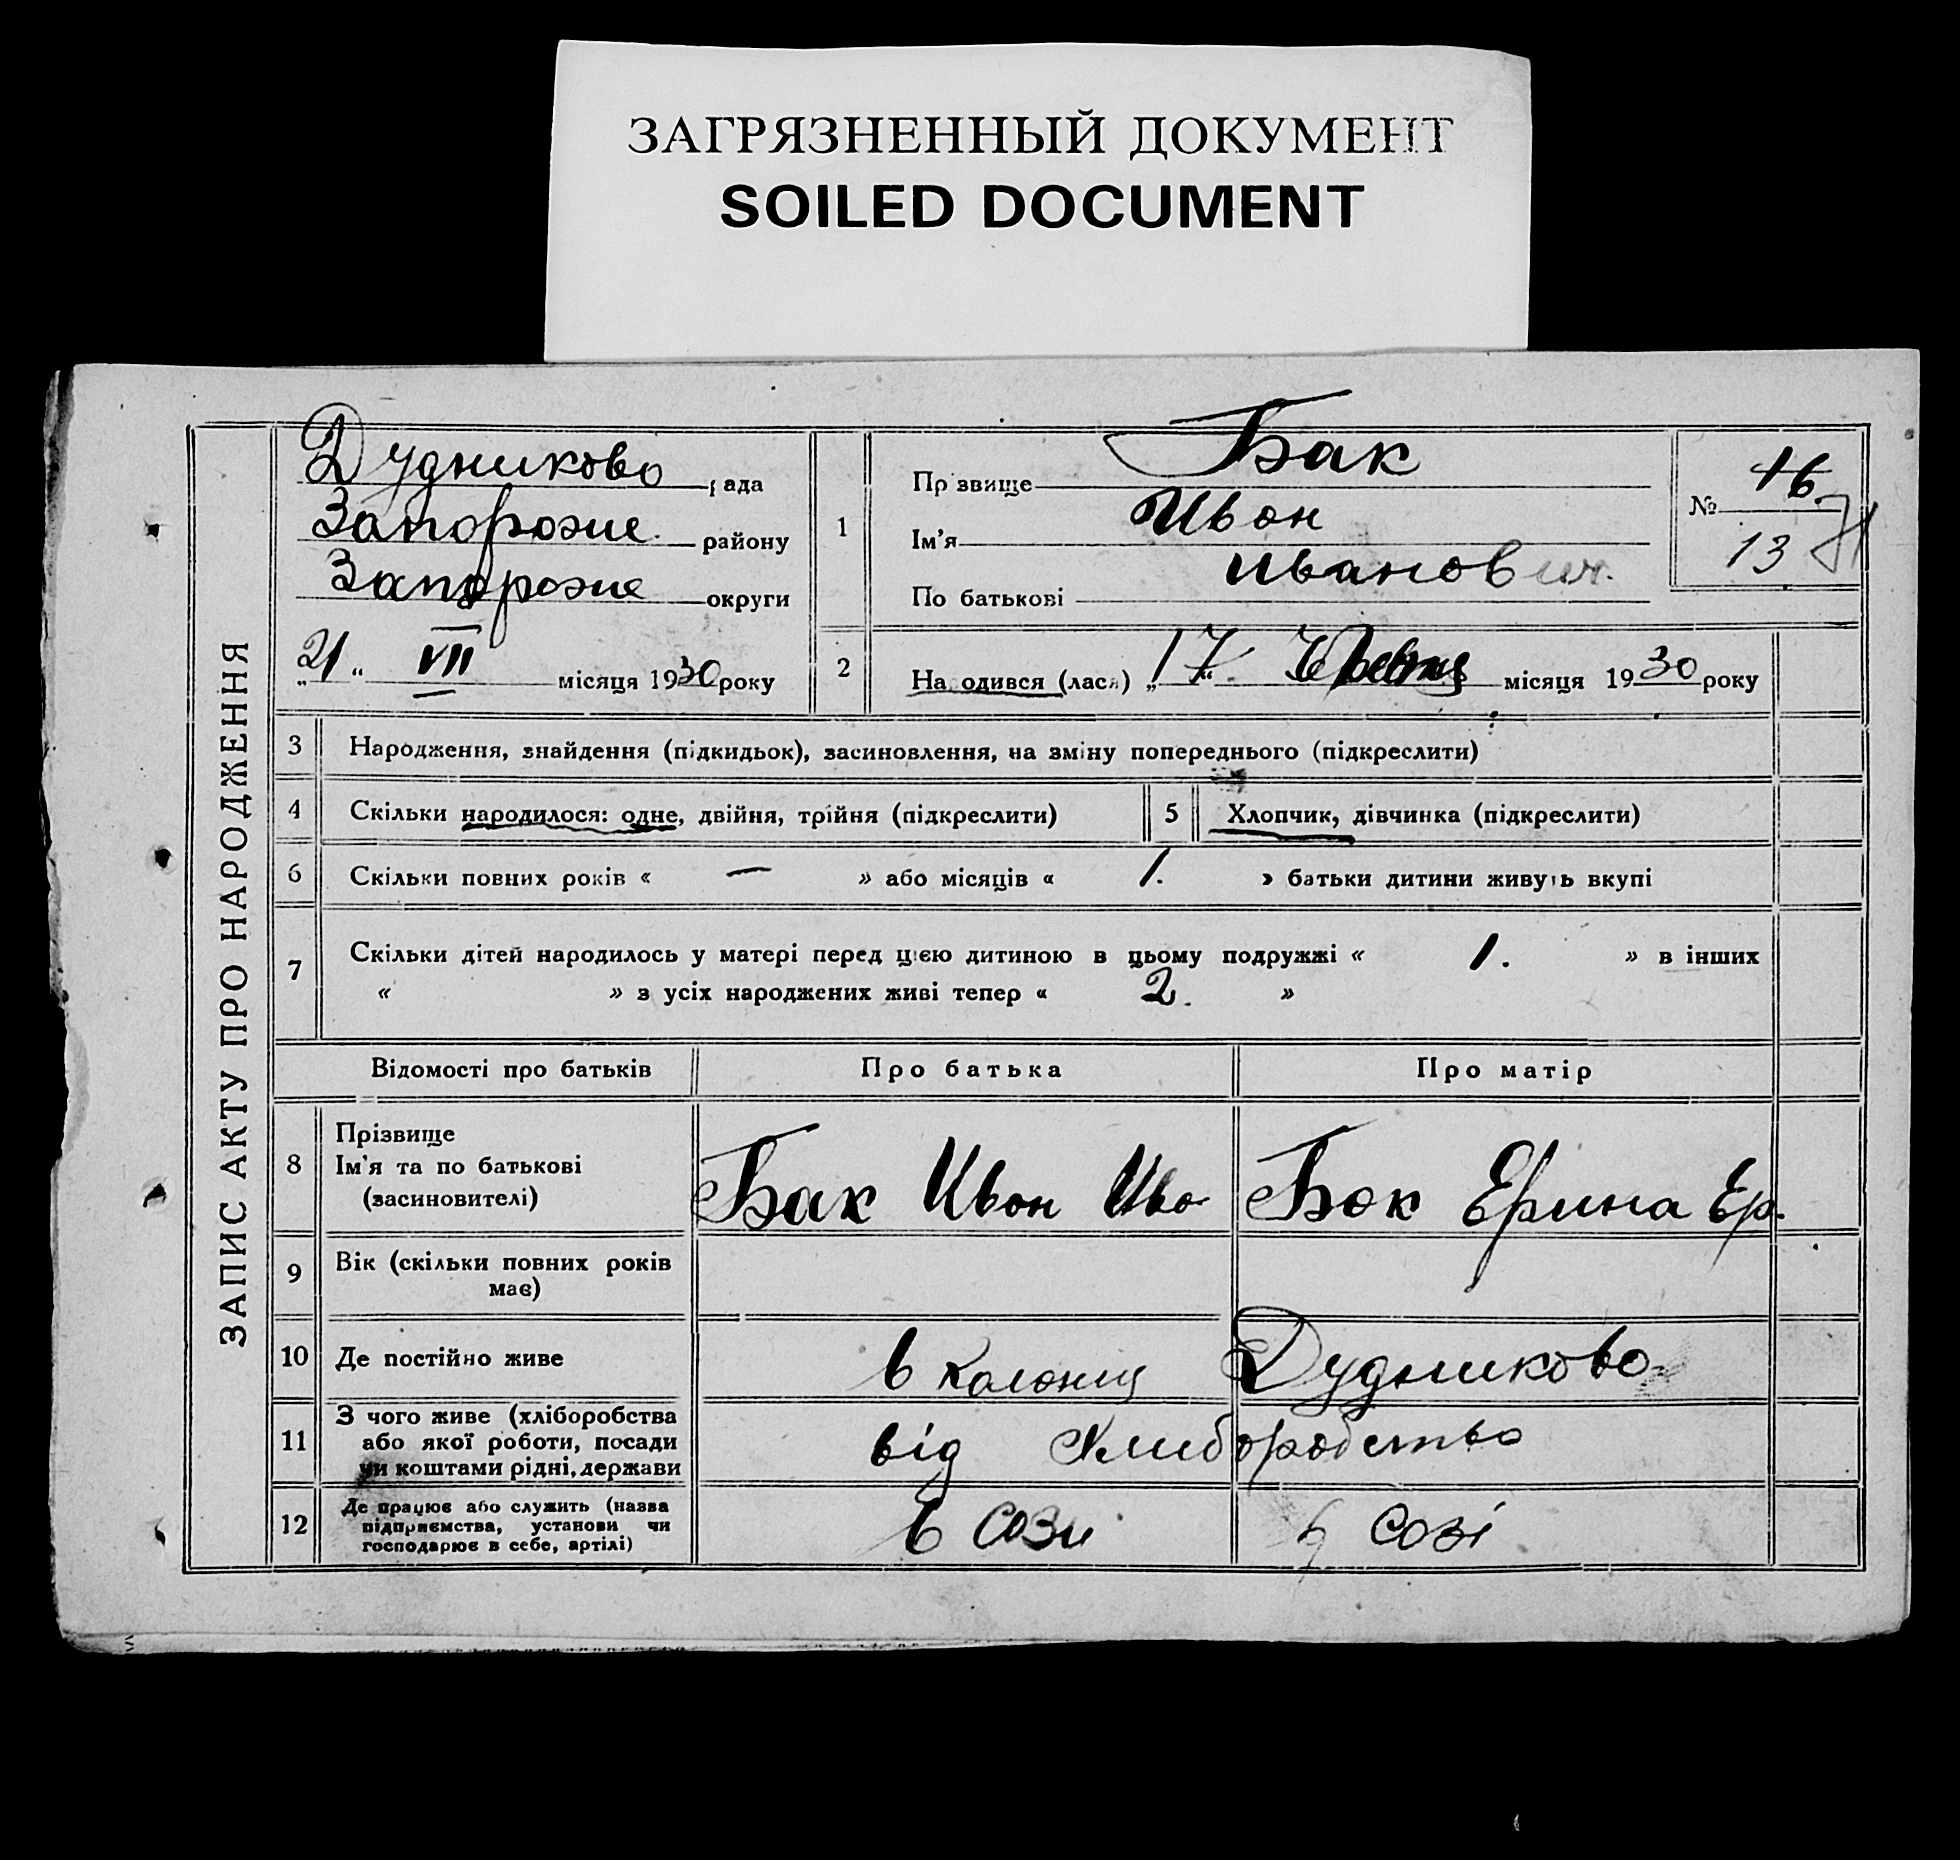 ЗАГРЯЗНЕННЫЙ ДОКУМЕНТ
SOILED DOCUMENT
ЗАПИС АКТУ ПРО НАРОДЖЕННЯ
Дудниково рада
Запорожие району
Запорожие округи
„21“ VII місяця 1930 року
1
Прізвище Бак
Ім'я Ивон
По батькові Иванович.
№ 16.
13
2
Народився (лася) „17.“ місяця 1930 року
3 Народження, знайдення (підкидьок), засиновлення, на зміну попереднього (підкреслити)
4 Скільки народилося: одне, двійня, трійня (підкреслити)
5 Хлопчик, дівчинка (підкреслити)
6 Скільки повних років « — » або місяців « 1. » батьки дитини живуть вкупі
7 Скільки дітей народилось у матері перед цією дитиною в цьому подружжі « 1. » в інших
« » з усіх народжених живі тепер « 2. »
Відомості про батьків Про батька Про матір
8 Прізвище
Ім'я та по батькові
(засиновителі)
Бак Ивон Ива Бок Ерина Ер.
9 Вік (скільки повних років
має)
10 Де постійно живе в Колониц Дудниково
11 З чого живе (хліборобства
або якої роботи, посади
чи коштами рідні, держави
від Хлиборобство
12 Де працює або служить (назва
підприємства, установи чи
господарює в себе, артілі)
в Сози у Созі